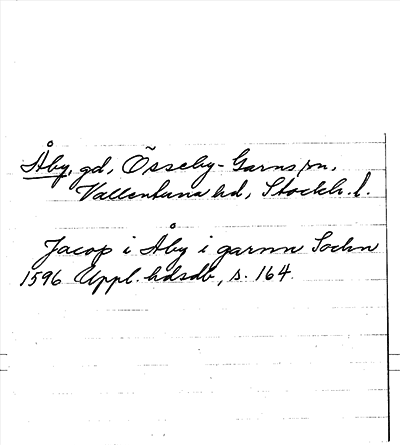 Åby, gd, Össeby-Garns sn,
Vallentuna hd, Stockh. l.
Jacop i Åby i garnn Sochn
1596 Uppl. hdsdb, s. 164.